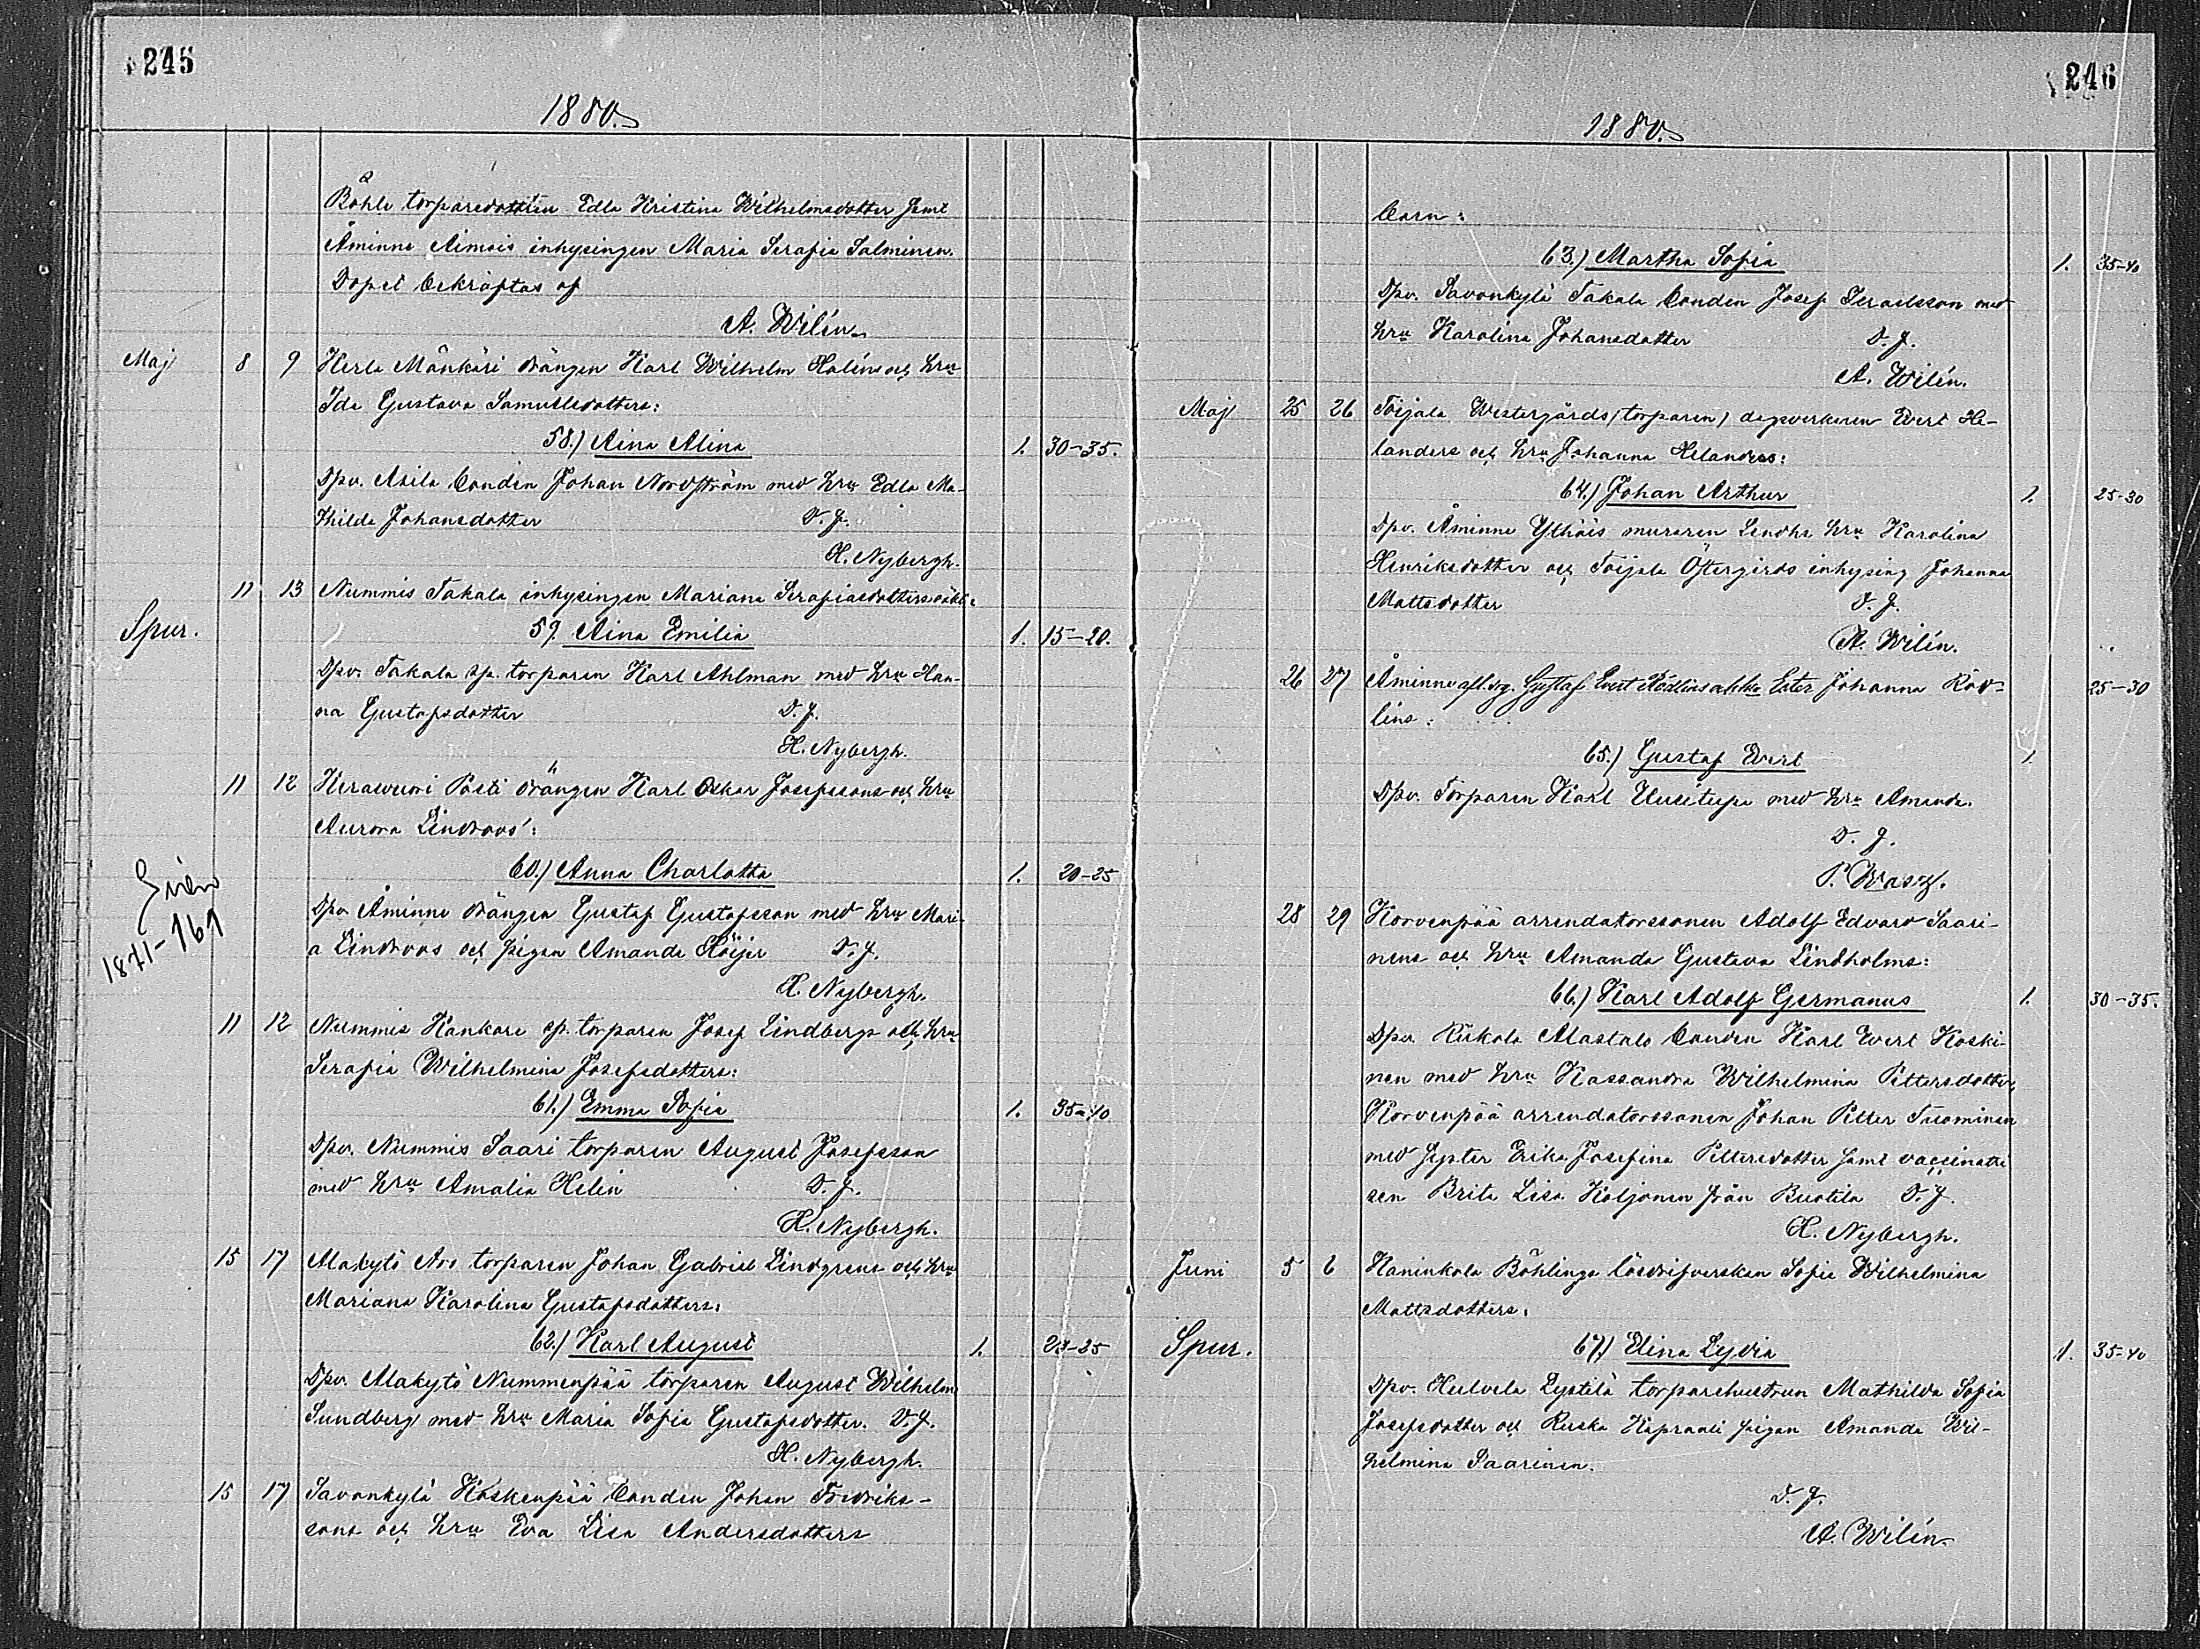 245
1880.
Böhle torparedottren Edla Kristina Wilhelmsdotter samt
Åminne Aimois inhysingen Maria Serafia Salminen.
Dopet bekräftas af
A. Wilén
Maj 8 9 Kerla Mänkäri drängen Karl Wilhelm Helins och hru
Ida Gustava Samuelsdotters:
58.) Aina Alina 1. 30-35.
Dpv. Asila bonden Johan Nordström med hru Edla Ma-
thilda Johansdotter D. f.
H. Nybergh.
11 13 Nummis Takala inhysingen Mariana Serafiasdotters oäkt:
Spur. 59. Aina Emilia 1. 15-20.
Dpv. Takala sp. torparen Karl Ahlman med hru Han-
na Gustafsdotter D. f.
H. Nybergh.
11 12 Kerawuori Pösti drängen Karl Oskar Josefssons och hru
Aurora Lindroos':
60.) Anna Charlotta 1. 20-25
1871-161
Dpv Åminne drängen Gustaf Gustafsson med hru Mari-
a Lindroos och pigan Amanda Höijer D. f.
H. Nybergh.
11 12 Nummis Kankare sp. torparen Josef Lindbergs och hru
Serafia Wilhelmina Josefsdotters:
61.) Emma Sofia 1. 35-40.
Dpv. Nummis Saari torparen August Josefsson
med hru Amalia Helin D. f.
H. Nybergh.
15 17 Alakytö Aro torparen Johan Gabriel Lindgrens och hru
Mariana Karolina Gustafsdotters:
62.) Karl August 1. 23-25
Dpv. Alakytö Nummenpää torparen August Wilhelm
Sundberg med hru Maria Sofia Gustafsdotter. D. f.
H. Nybergh.
15 17 Savonkylä Koskenpää bonden Johan Fredriks-
sons och hru Eva Lisa Andersdotters
246
1880.
barn:
63.) Martha Sofia 1. 35-40
Dpv. Savonkylä Takala bonden Josef Israelsson med
hru Karolina Johansdotter D. f.
A. Wilén.
Maj 25 26 Toijala Westergårds (torparen) dagsverkaren Evert He-
landers och hru Johanna Helanders:
64.) Johan Arthur 1. 25-30
Dpv. Åminne Ythäis muraren Lindhs hru Karolina
Henriksdotter och Toijala Östergårds inhysing Johanna
Mattsdotter D. f.
A. Wilén.
26 27 Åminne Gustaf Evert Rödlins Ester Johanna Röd-
lins: 25-30
65.) Gustaf Evert 1.
Dpv. Torparen Karl Uusitupa med hru Amanda.
D. f.
P. Wasz.
28 29 Korvenpää arrendatorssonen Adolf Edvard Saari-
nens och hru Amanda Gustava Lindholms:
66.) Karl Adolf Germanus 1. 30-35.
Dpv. Kukola Alastalo bonden Karl Evert Koski-
nen med hru Kassandra Wilhelmina Pettersdotter,
Korvenpää arrendatorssonen Johan Petter Tuominen
med syster Erika Josefina Pettersdotter samt vaccinatri
sen Brita Lisa Koljonen från Buotila D. f.
H. Nybergh.
Juni 5 6 Kaninkola Böhlings lösdrifverskan Sofia Wilhelmina
Mattsdotters:
Spur. 67.) Elina Lydia 1. 35-40
Dpv. Hulvela Lystilä torparehustrun Mathilda Sofia
Josefsdotter och Ruska Kapraali pigan Amanda Wil-
helmina Saarinen.
D. f.
A. Wilén.